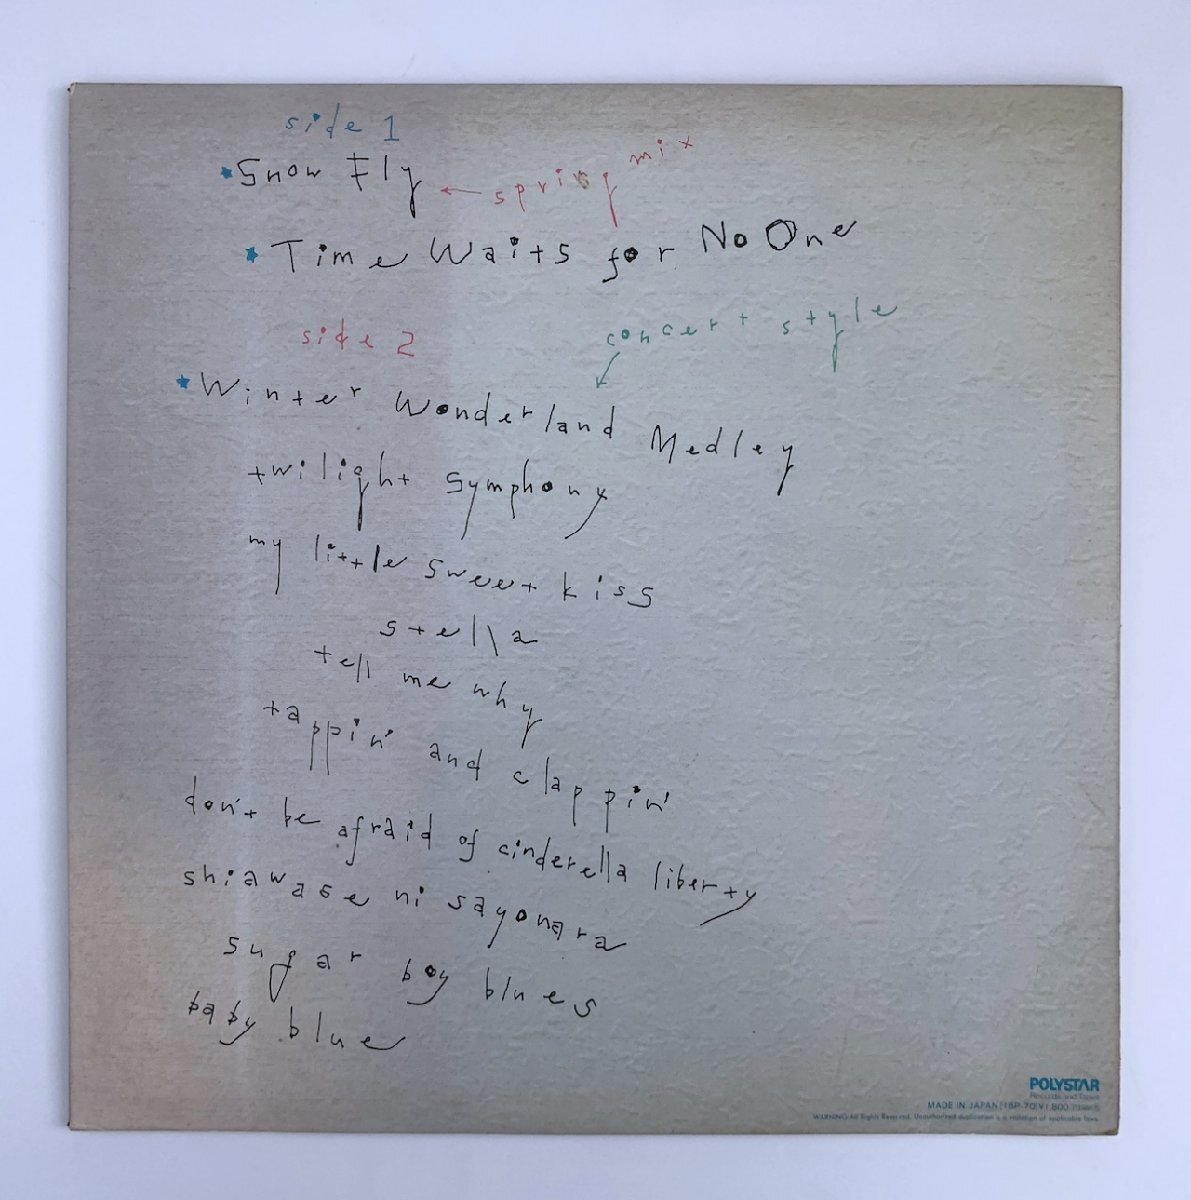 side 1
Snow Fly ← spring mix
Time Waits for No One
side 2
concert style
Winter Wonderland Medley
twilight symphony
my little sweet kiss
stella
tell me why
tappin' and clappin'
don't be afraid of cinderella liberty
shiawase ni sayonara
sugar boy blues
baby blue
POLYSTAR
Records and Tapes
MADE IN JAPAN (18P-70) ¥1,800
WARNING: All Rights Reserved. Unauthorized duplication is a violation of applicable laws.